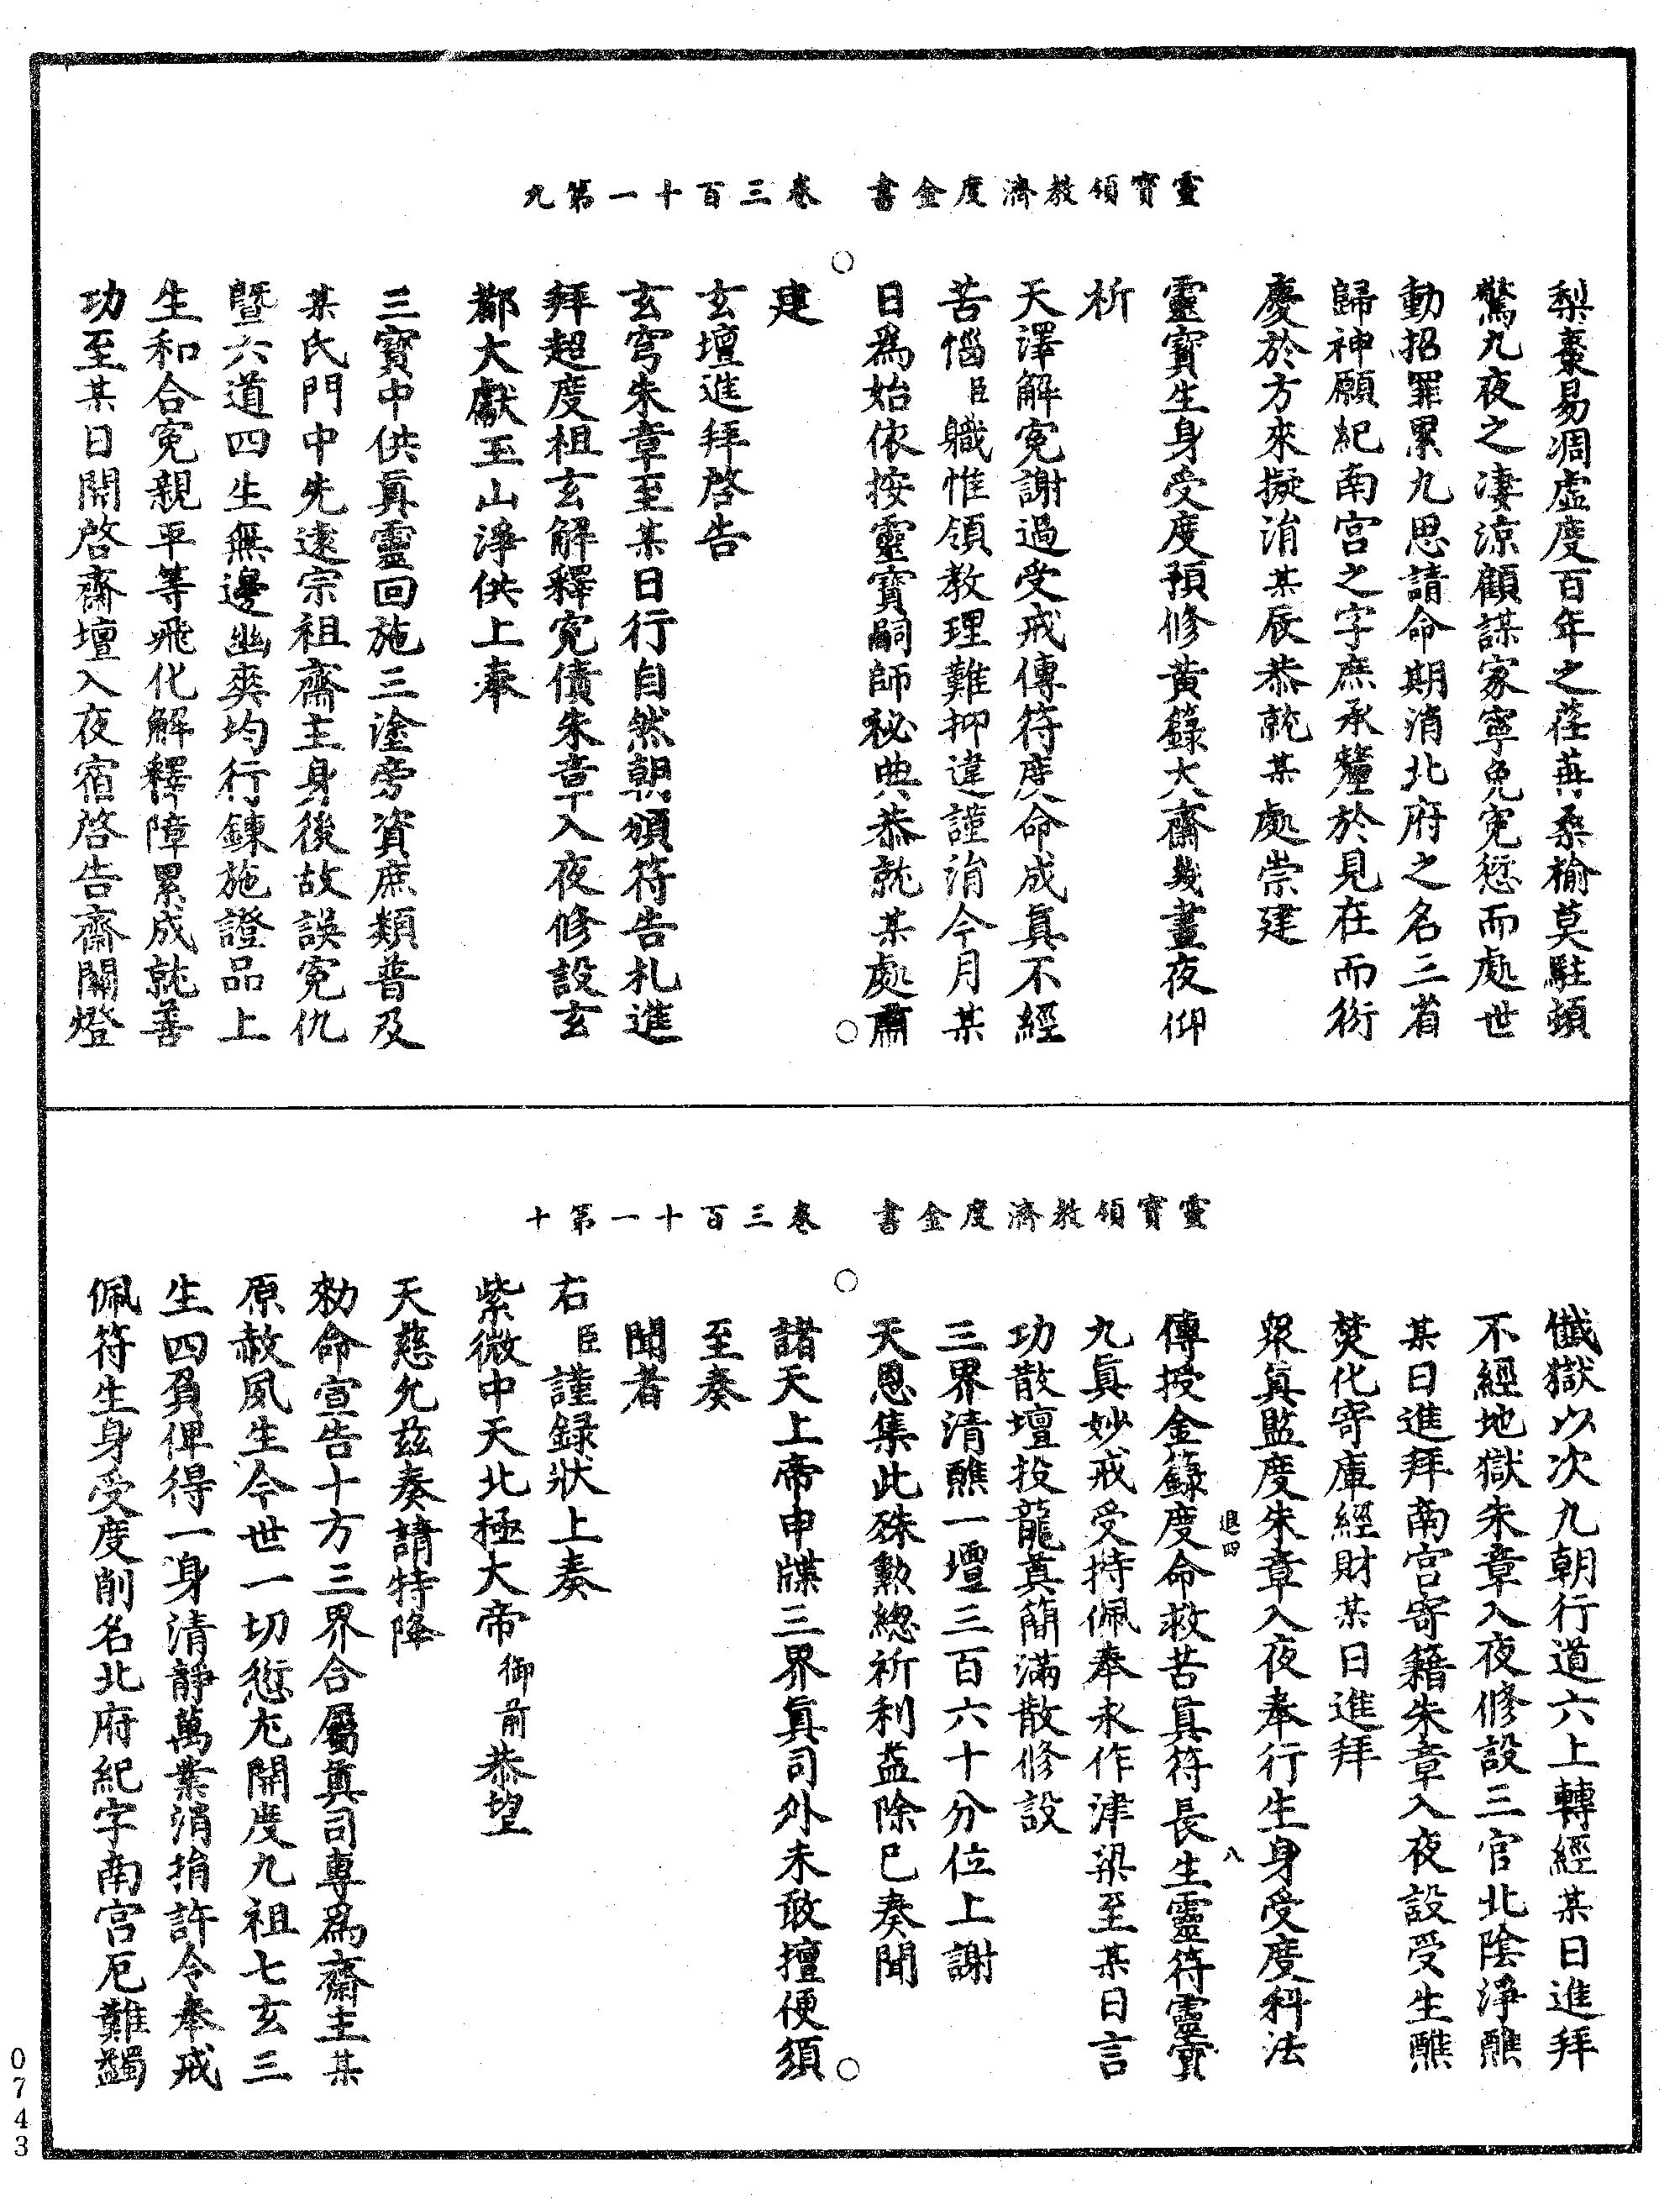 靈寶領教濟度金書　卷三百十一第九
梨棗易凋虛度百年之荏苒桑榆莫駐頓
驚九夜之凄涼顧謀家寧免寃愆而處世
動招罪累九思請命期消北府之名三省
歸神願紀南宮之字庶承釐於見在而衍
慶於方來擬涓某辰恭就某處崇建
靈寶生身受度預修黃籙大齋幾晝夜仰
祈
天澤解寃謝過受戒傳符度命成眞不經
苦惱臣職惟領教理難抑違謹涓今月某
日爲始依按靈寶嗣師秘典恭就某處肅
建
玄壇進拜啓告
玄穹朱章至某日行自然朝頒符告札進
拜超度祖玄解釋寃債朱章入夜修設玄
都大獻玉山淨供上奉
三寶中供眞靈回施三塗旁資庶類普及
某氏門中先遠宗祖齋主身後故誤寃仇
曁六道四生無邊幽爽均行鍊施證品上
生和合寃親平等飛化解釋障累成就善
功至某日開啓齋壇入夜宿啓告齋關燈
靈寶領教濟度金書　卷三百十一第十
懺獄以次九朝行道六上轉經某日進拜
不經地獄朱章入夜修設三官北陰淨醮
某日進拜南宮寄籍朱章入夜設受生醮
焚化寄庫經財某日進拜
衆眞監度朱章入夜奉行生身受度科法
退四　八
傳授金籙度命救苦眞符長生靈符靈寶
九眞妙戒受持佩奉永作津梁至某日言
功散壇投龍奠簡滿散修設
三界清醮一壇三百六十分位上謝
天恩集此殊勲總祈利益除已奏聞
諸天上帝申牒三界眞司外未敢擅便須
至奏
聞者
右臣謹録狀上奏
紫微中天北極大帝御前恭望
天慈允兹奏請特降
勑命宣告十方三界合屬眞司專爲齋主某
原赦夙生今世一切愆尤開度九祖七玄三
生四負俾得一身清靜萬業消捐許令奉戒
佩符生身受度削名北府紀字南宮厄難蠲
0743